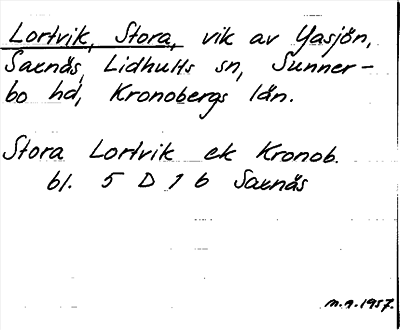 Lortvik, Stora, vik av Yasjön,
Saxnäs, Lidhults sn, Sunner-
bo hd, Kronobergs län.
Stora Lortvik ek Kronob.
bl. 5 D 7 b Saxnäs
m.a.1957.